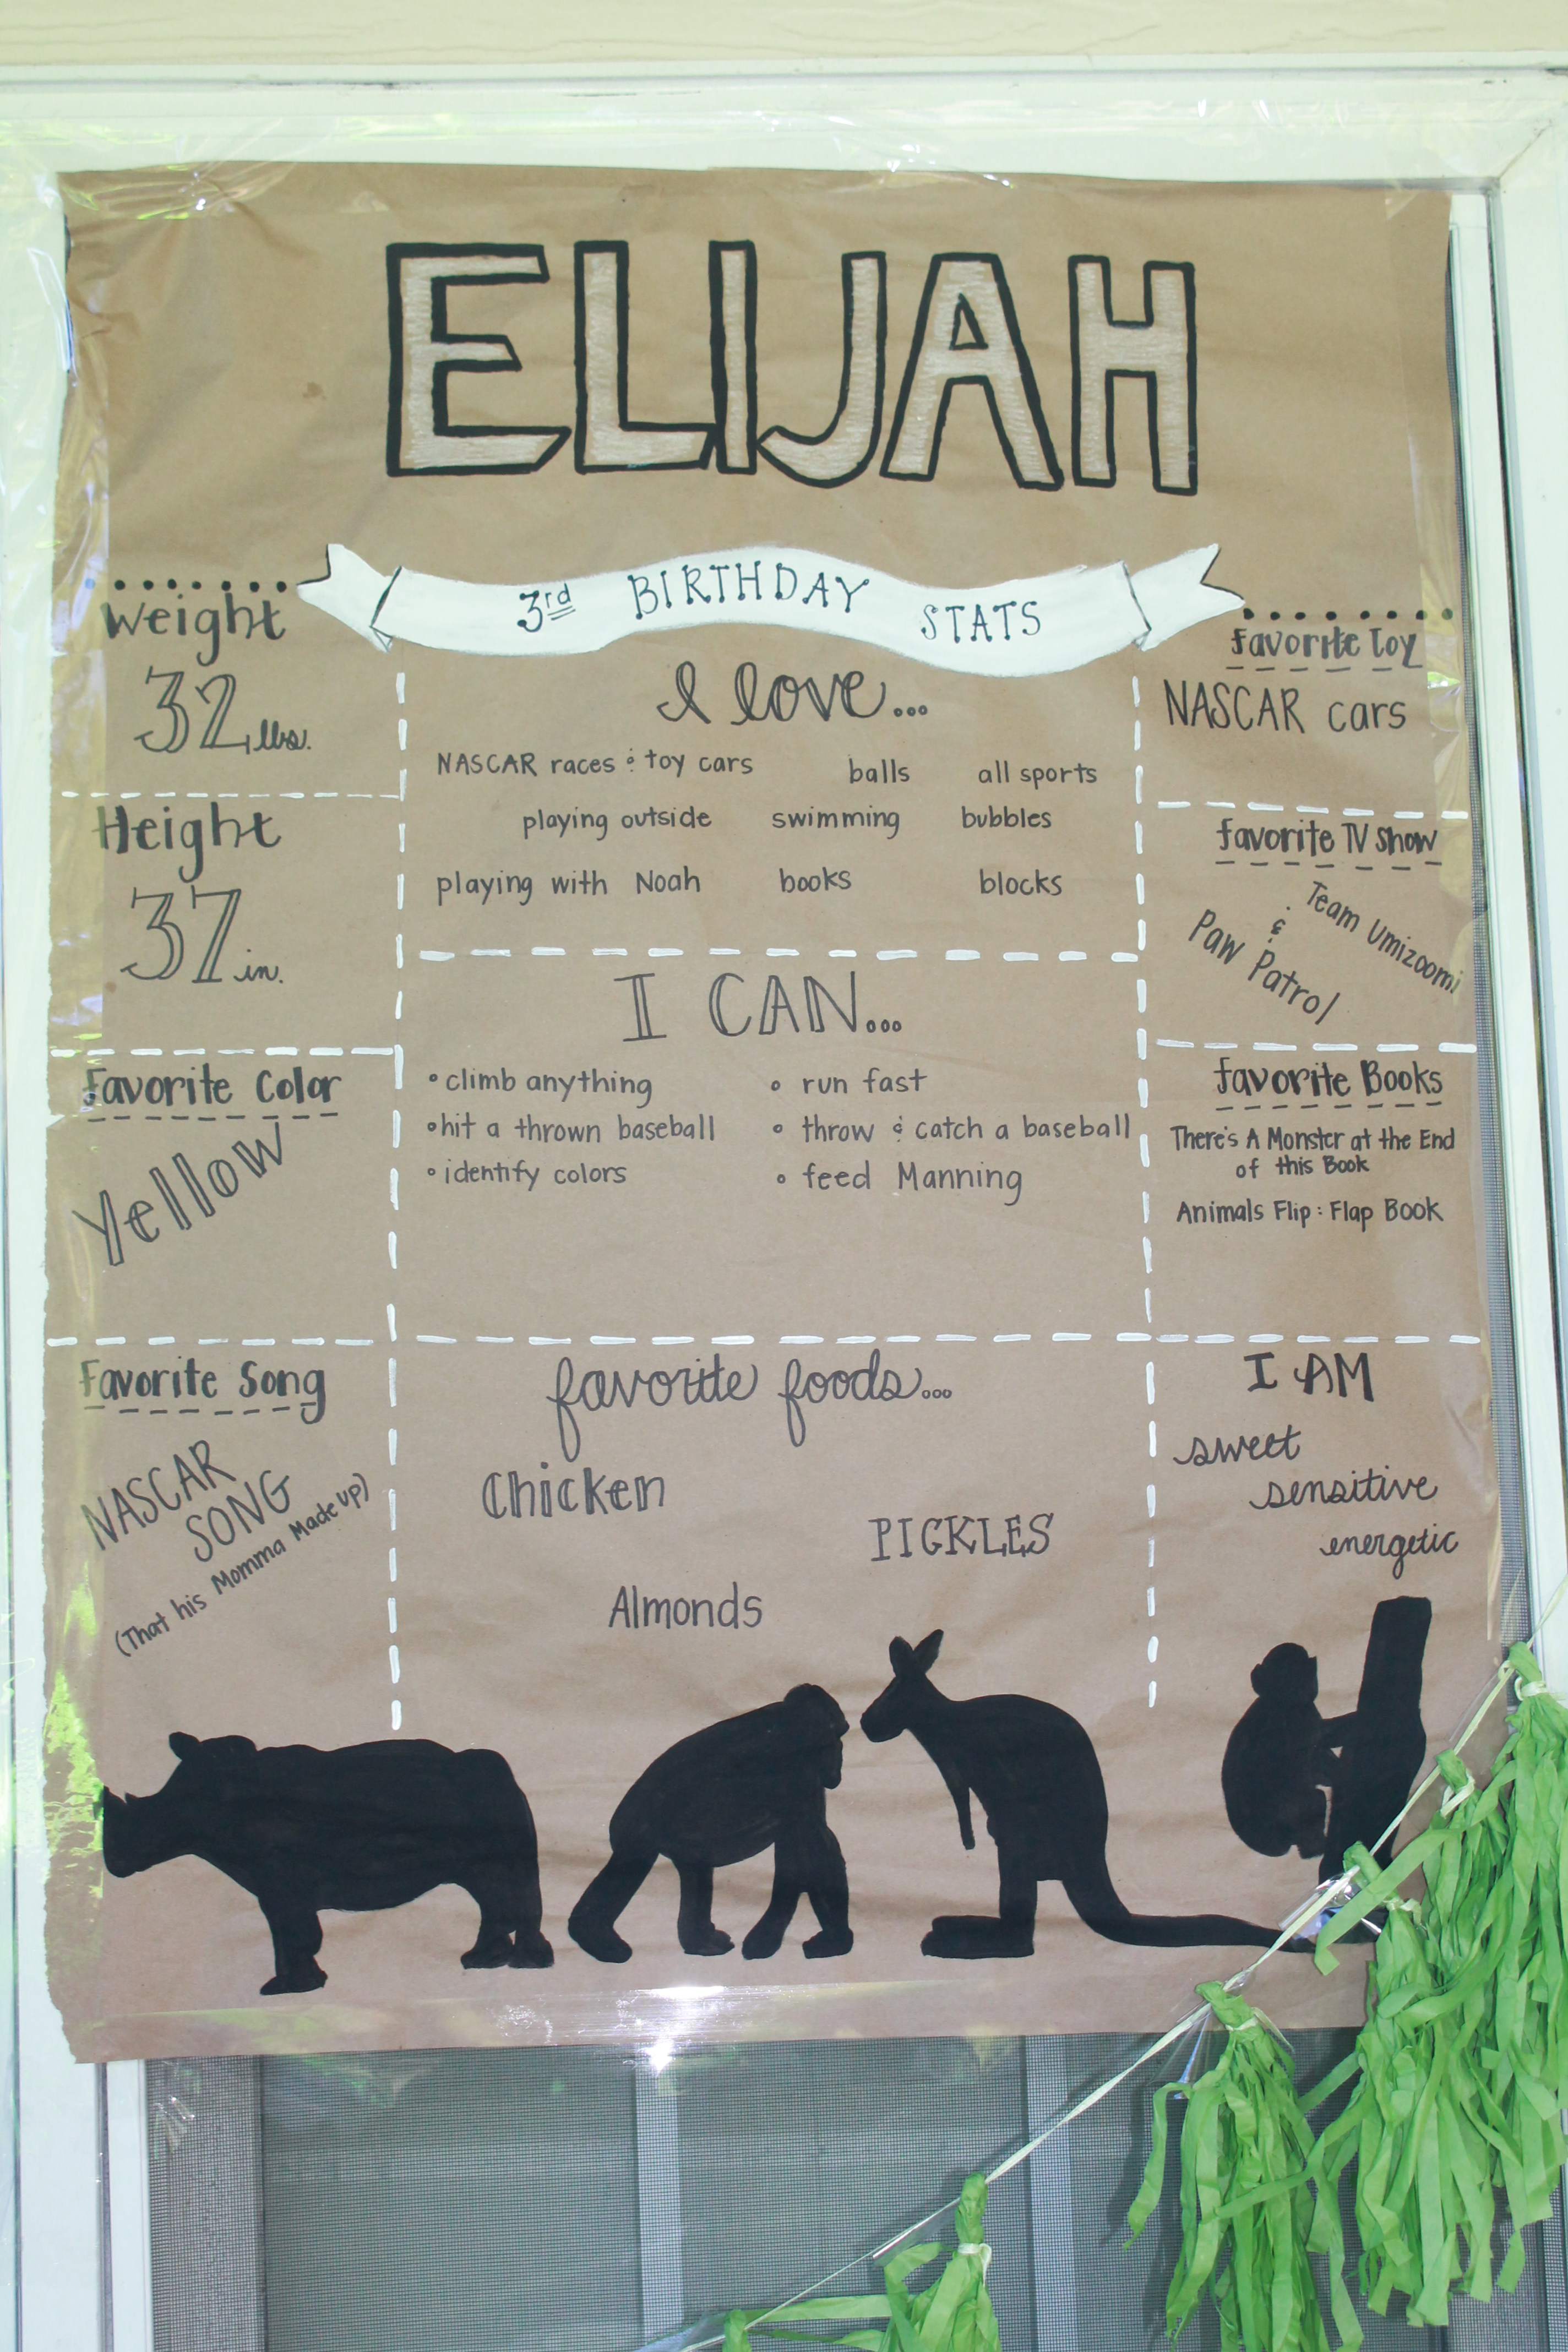 ELIJAH
3rd BIRTHDAY STATS
Weight
32 lbs.
Height
37 in.
Favorite Color
Yellow
Favorite Song
NASCAR
SONG
(That his Momma Made up)
I love...
NASCAR races & toy cars balls all sports
playing outside swimming bubbles
playing with Noah books blocks
I CAN...
• climb anything • run fast
• hit a thrown baseball • throw & catch a baseball
• identify colors • feed Manning
favorite foods...
Chicken
PICKLES
Almonds
Favorite Toy
NASCAR cars
Favorite TV Show
Team Umizoomi
&
Paw Patrol
Favorite Books
There's A Monster at the End
of this Book
Animals Flip : Flap Book
I AM
sweet
sensitive
energetic